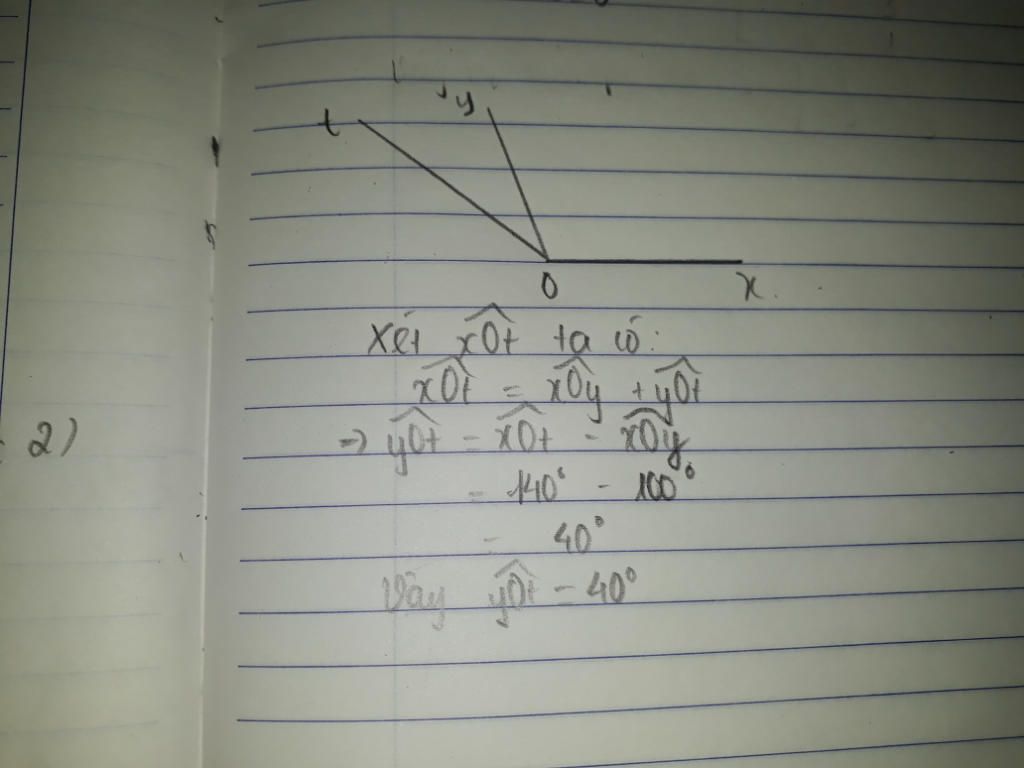 t y
O x
Xét xOt ta có:
xOt = xOy + yOt
2) => yOt = xOt - xOy
= 140° - 100°
= 40°
Vậy yOt = 40°